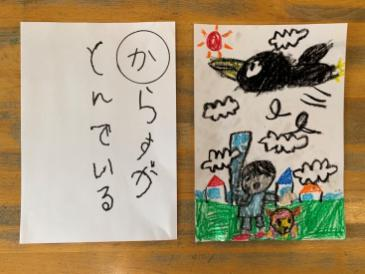 からすが
とんでいる